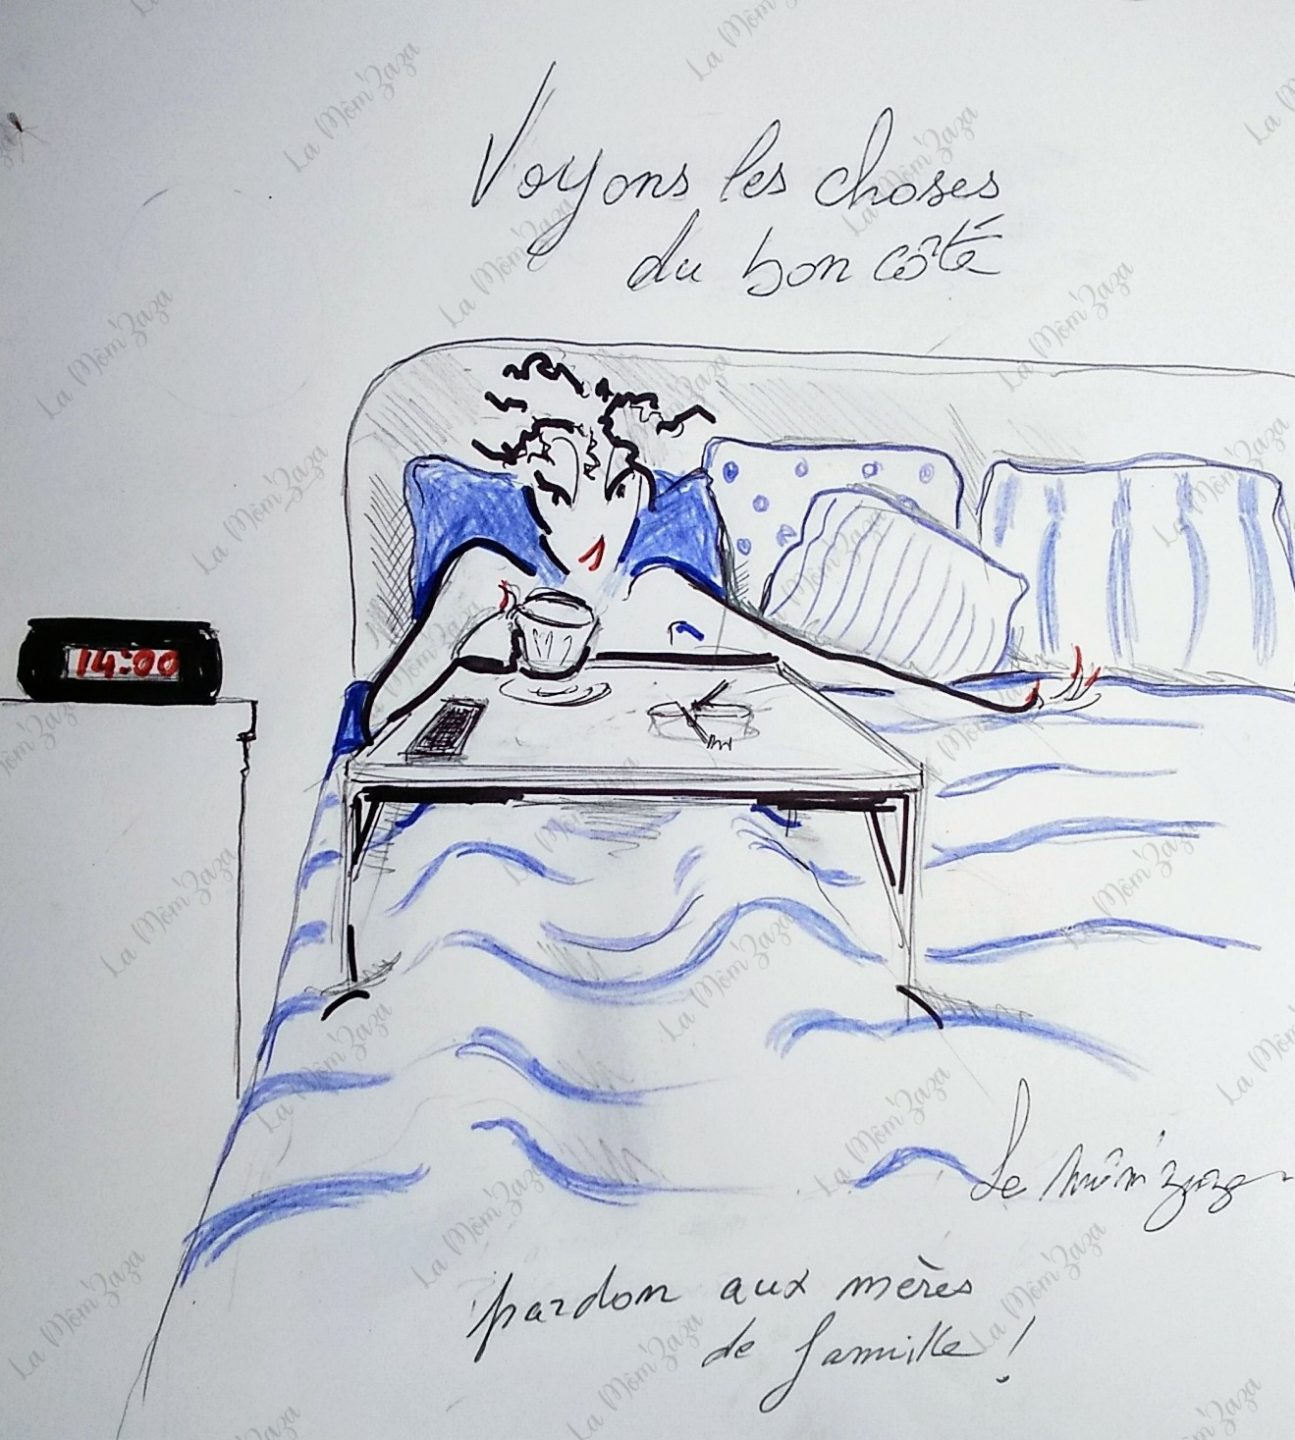 Voyons les choses
du bon côté
14:00
La Môm'Zaza
pardon aux mères
de famille !